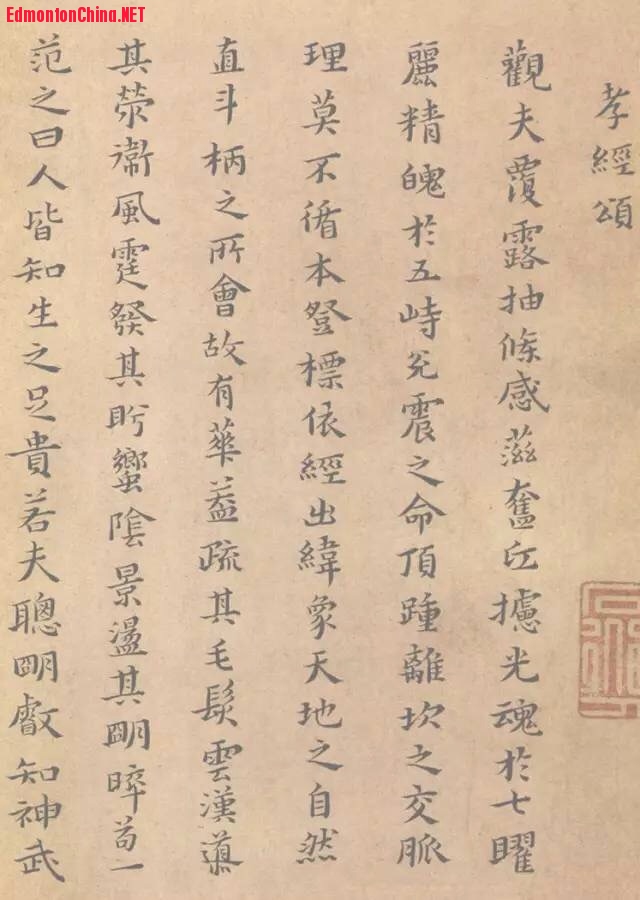 EdmontonChina.NET
孝經頌
觀夫覆露抽條感茲奮匠攄光魂於七曜
麗精魄於五峙兊震之命頂踵離坎之交脈
理莫不循本登標依經出緯象天地之自然
直斗柄之所會故有華蓋疏其毛髮雲漢導
其荥衛風霆發其肹蠁陰景盪其朙晬苟一
范之曰人皆知生之足貴若夫聰朙叡知神武